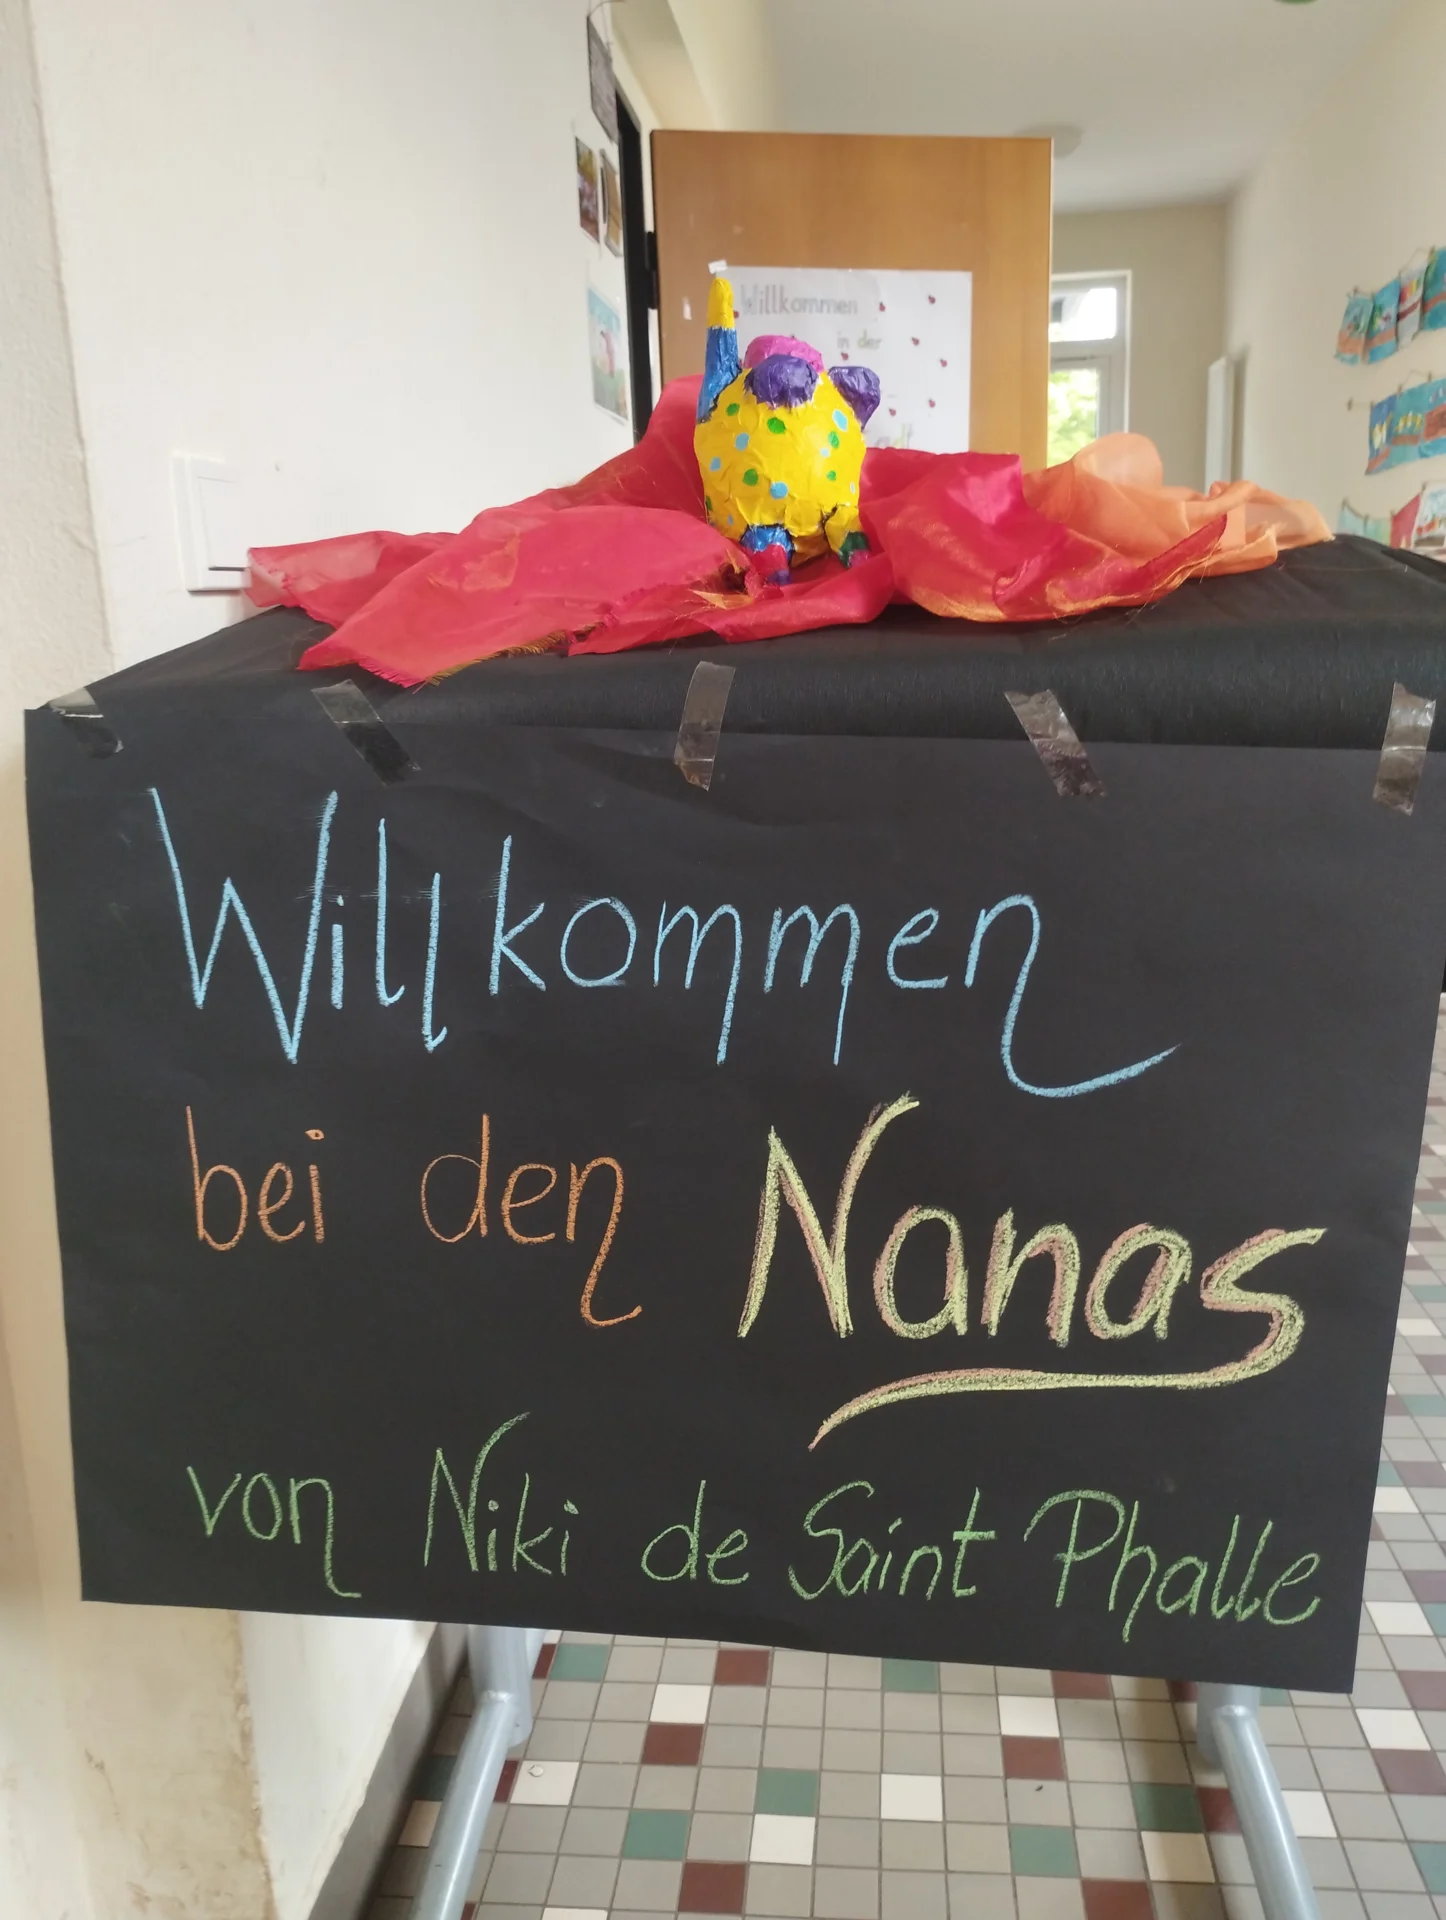 Willkommen
in der
Willkommen
bei den Nanas
von Niki de Saint Phalle